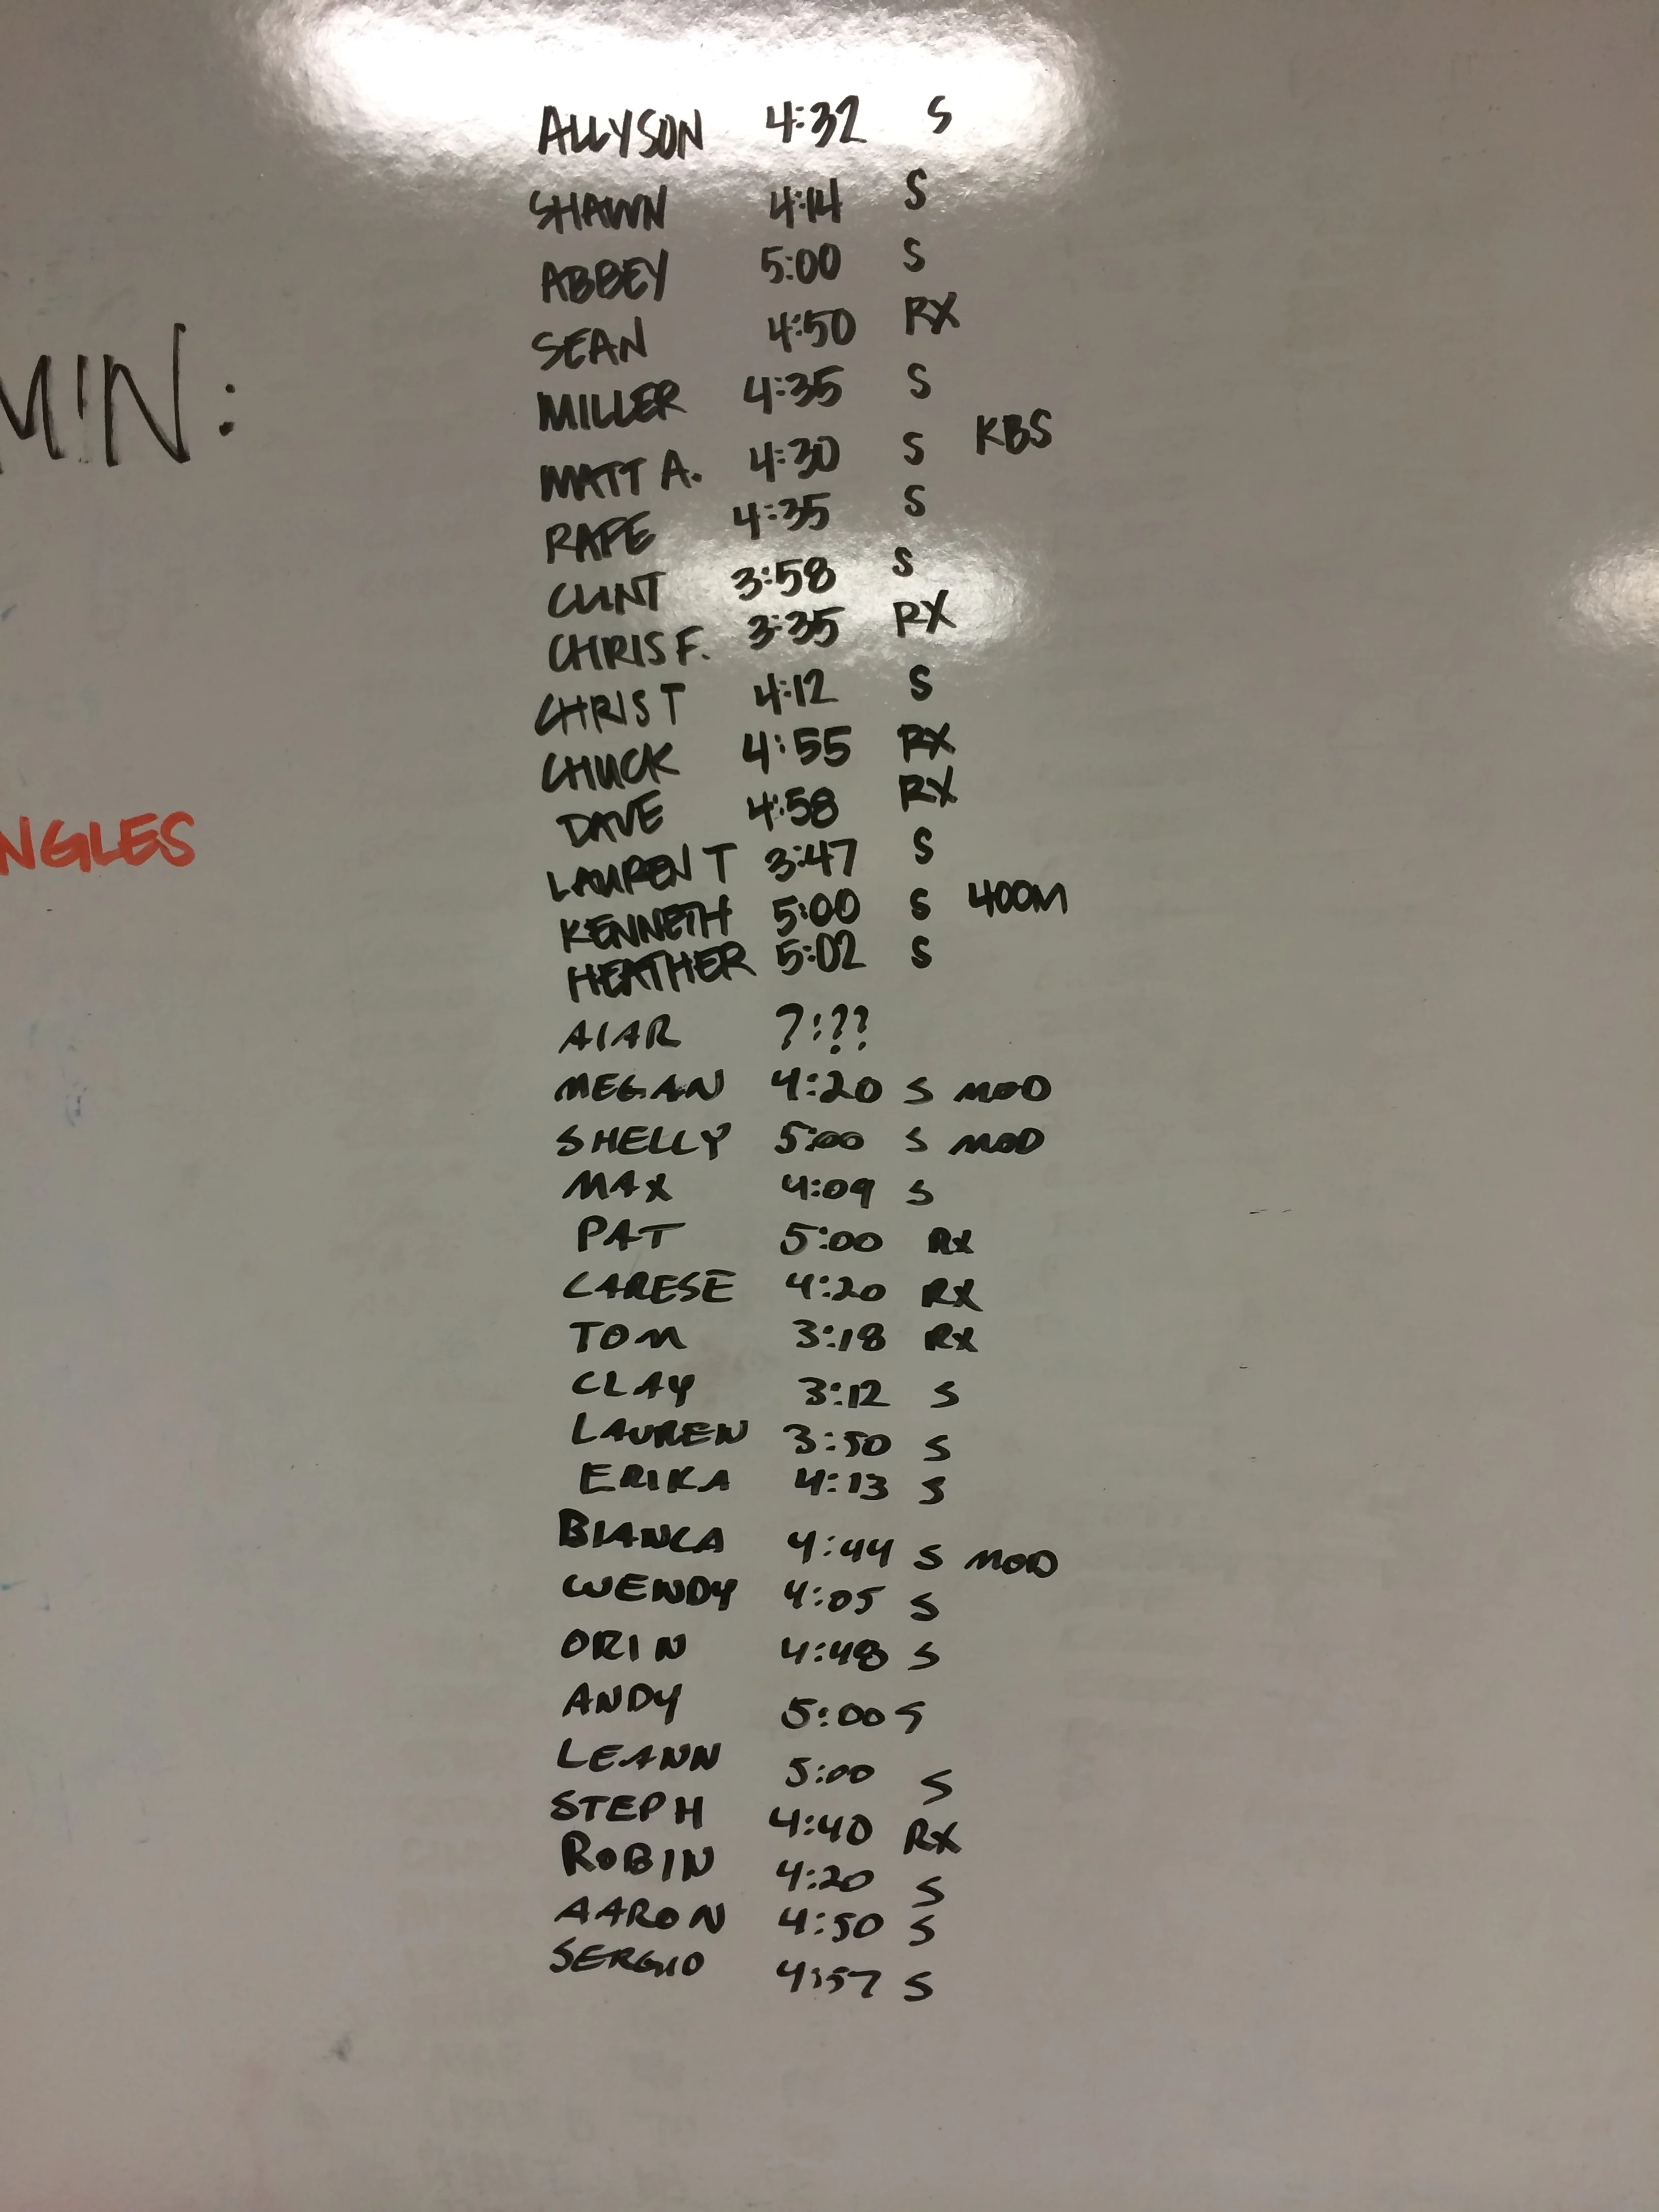 ALLYSON 4:32 S
SHAWN 4:14 S
ABBEY 5:00 S
SEAN 4:50 RX
MIN:
MILLER 4:35 S
MATT A. 4:30 S KBS
RAFE 4:35 S
CLINT 3:58 S
CHRIS F. 3:35 RX
CHRIS T 4:12 S
CHUCK 4:55 RX
DAVE 4:58 RX
NGLES
LAUREN T 3:47 S
KENNETH 5:00 S 400M
HEATHER 5:02 S
AIAR ?:??
MEGAN 4:20 S MOD
SHELLY 5:00 S MOD
MAX 4:09 S
PAT 5:00 Rx
CARESE 4:20 Rx
TOM 3:18 Rx
CLAY 3:12 S
LAUREN 3:50 S
ERIKA 4:13 S
BIANCA 4:44 S MOD
WENDY 4:05 S
ORIN 4:48 S
ANDY 5:00 S
LEANN 5:00 S
STEPH 4:40 RX
ROBIN 4:20 S
AARON 4:50 S
SERGIO 4:57 S